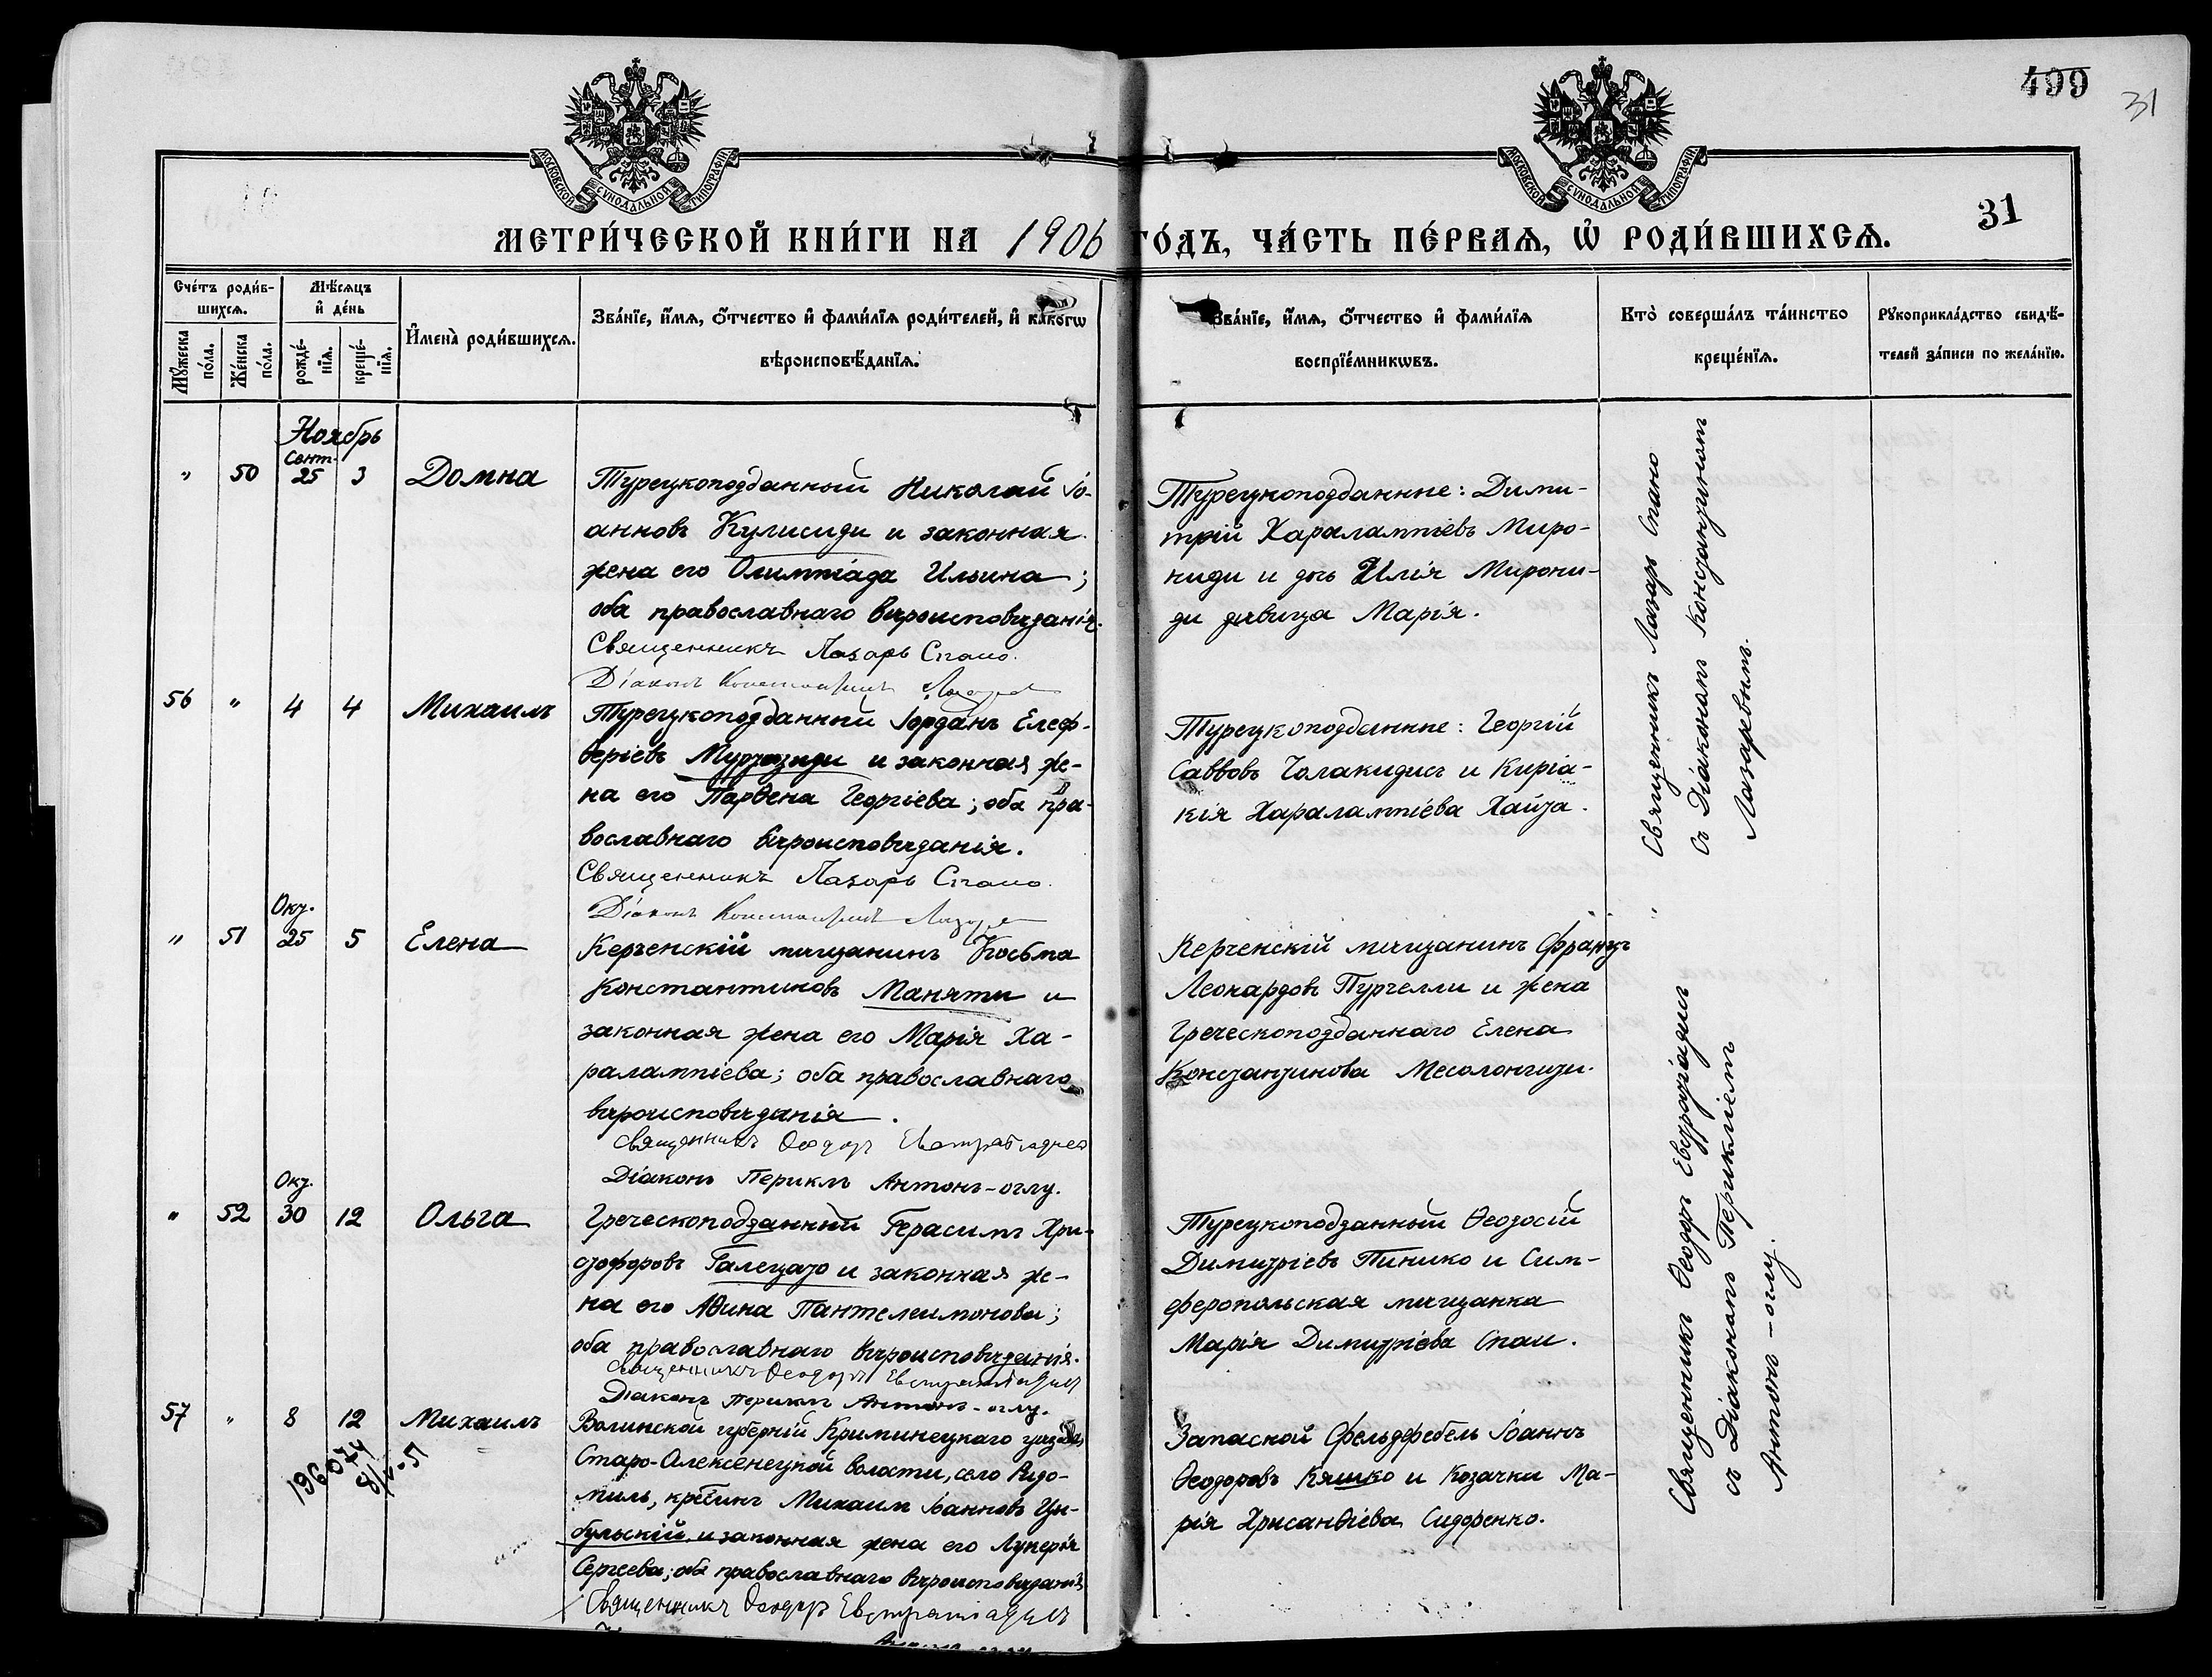 499
31
МОСКОВСКОЙ СѴНОДАЛЬНОЙ ТИПОГРАФІИ
МОСКОВСКОЙ СѴНОДАЛЬНОЙ ТИПОГРАФІИ
31
МЕТРИ́ЧЕСКОЙ КНИ́ГИ НА 1906 ГО́ДЪ, ЧА́СТЬ ПЕ́РВАѦ, Ѡ҆ РОДИ́ВШИХСѦ.
Сче́тъ роди́в-
шихсѧ.
Мꙋ́жеска по́ла.
Же́нска по́ла.
Мѣ́сѧцъ и҆ де́нь
рожде́-
нїѧ.
креще́-
нїѧ.
И҆мена̀ роди́вшихсѧ.
Зва́нїе, и҆́мѧ, ѻ҆́тчество и҆ фами́лїѧ роди́телей, и҆ како́гѡ
вѣроисповѣ́данїѧ.
Зва́нїе, и҆́мѧ, ѻ҆́тчество и҆ фами́лїѧ
воспрїе́мникѡвъ.
Кто̀ соверша́лъ та́инство
креще́нїѧ.
Рꙋкоприкла́дство свидѣ́-
телей за́писи по жела́нїю.
Ноябрь
" 50 Сент. 25 3 Домна
Турецкоподданный Николай Іо-
анновъ Кулисиди и законная
жена его Олимпіада Ильина;
оба православнаго вѣроисповѣданія.
Священникъ Лазарь Спано.
Діаконъ Константинъ Лазарев
Турецкоподданные: Дими-
трій Харалампіевъ Миро-
ниди и дочь Илія Мирони-
ди дѣвица Марія.
56 " 4 4 Михаилъ
Турецкоподданный Іорданъ Елеф-
ѳеріевъ Мурузиди и законная же-
на его Парѳена Георгіева; оба пра-
вославнаго вѣроисповѣданія.
Священникъ Лазарь Спано.
Діаконъ Константинъ Лазарев
Турецкоподданные: Георгій
Саввовъ Чолакидисъ и Киріа-
кія Харалампіева Хайта.
Священникъ Лазарь Спано
съ Діакономъ Константиномъ
Лазаревымъ.
" 51 Окт. 25 5 Елена
Керченскій мѣщанинъ Косьма
Константиновъ Маняти и
законная жена его Марія Ха-
ралампіева; оба православнаго
вѣроисповѣданія.
Священникъ Ѳеодоръ Евстратіадисъ
Діаконъ Периклъ Антонъ-оглу.
Керченскій мѣщанинъ Францъ
Леонардовъ Пурчелли и жена
Греческоподданнаго Елена
Константинова Месолонгити.
" 52 Окт. 30 12 Ольга
Греческоподданный Герасимъ Хри-
стофоровъ Галецато и законная же-
на его Аѳина Пантелеимонова;
оба православнаго вѣроисповѣданія.
Священникъ Ѳеодоръ Евстратіадисъ
Діаконъ Периклъ Антонъ-оглу.
Турецкоподданный Ѳеодосій
Димитріевъ Пинико и Сим-
феропольская мѣщанка
Марія Димитріева Спаи.
57 " 8 12 Михаилъ
Волынской губерніи Креминецкаго уѣзда,
Старо-Олексенецкой волости, село Ридо-
миль, крест. Михаилъ Іоанновъ Цы-
бульскій и законная жена его Лукерія
Сергеева; оба православнаго вѣроисповѣданія
Священникъ Ѳеодоръ Евстратіадисъ
Запасной Фельдфебель Іоаннъ
Ѳеодоровъ Кяшко и Козачки Ма-
рія Хрисанѳіева Сидоренко.
Священникъ Ѳеодоръ Евстратіадисъ
съ Діакономъ Перикліемъ
Антонъ-оглу.